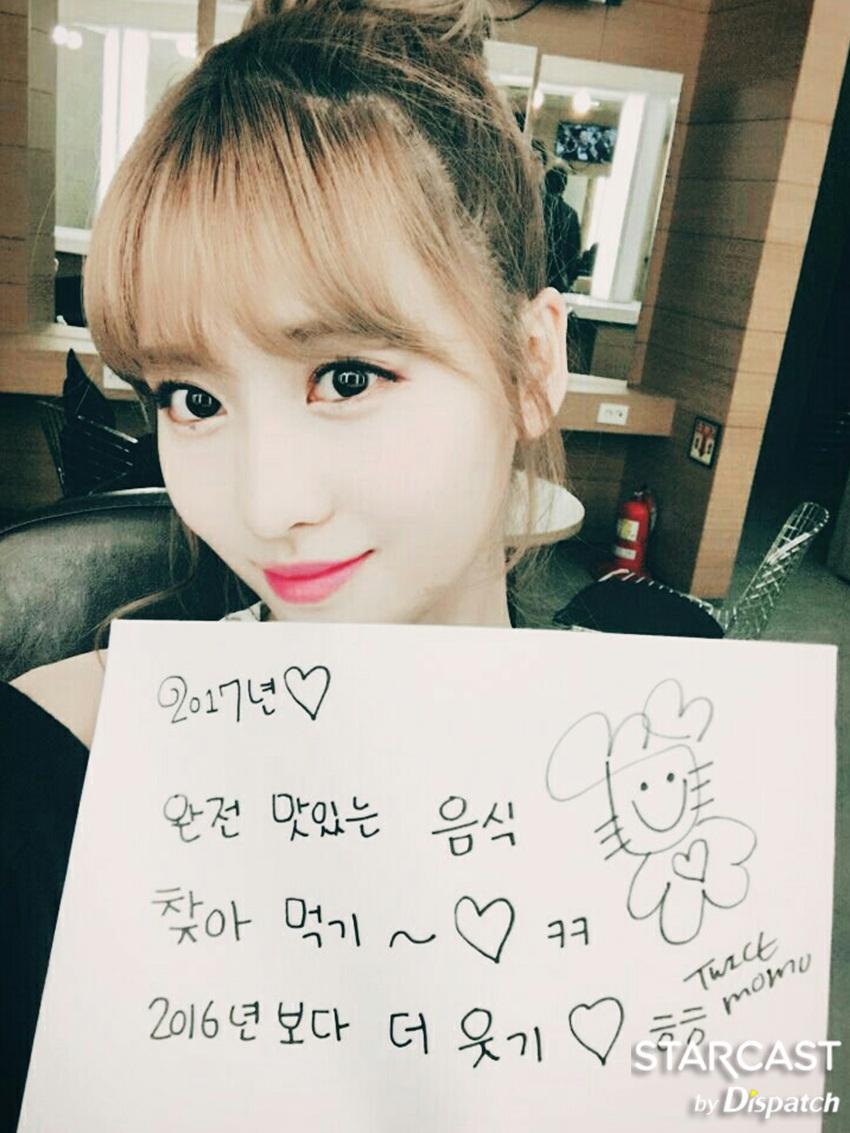 2017년♡
완전 맛있는 음식
찾아 먹기~♡ ㅋㅋ
2016년보다 더 웃기♡ 흐흐
Twice
momo
STARCAST
by Dispatch